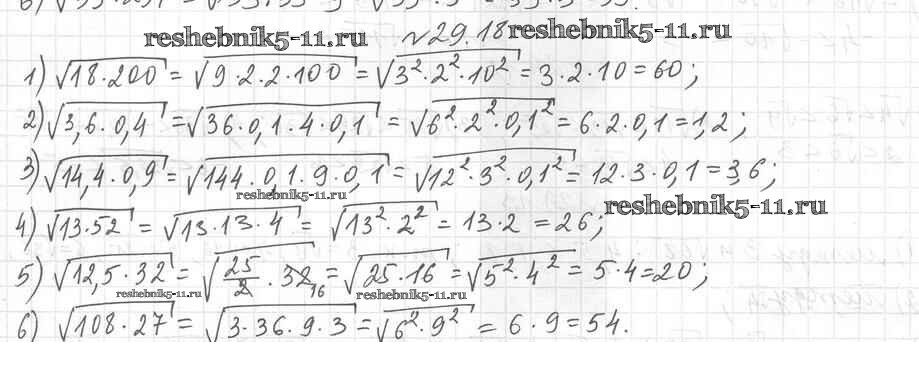 reshebnik5-11.ru №29.18 reshebnik5-11.ru
1) √18·200 = √9·2·2·100 = √3²·2²·10² = 3·2·10 = 60;
2) √3,6·0,4 = √36·0,1·4·0,1 = √6²·2²·0,1² = 6·2·0,1 = 1,2;
3) √14,4·0,9 = √144·0,1·9·0,1 = √12²·3²·0,1² = 12·3·0,1 = 3,6;
reshebnik5-11.ru
reshebnik5-11.ru
4) √13·52 = √13·13·4 = √13²·2² = 13·2 = 26;
5) √12,5·32 = √25/2·32 16 = √25·16 = √5²·4² = 5·4 = 20;
reshebnik5-11.ru reshebnik5-11.ru
6) √108·27 = √3·36·9·3 = √6²·9² = 6·9 = 54.